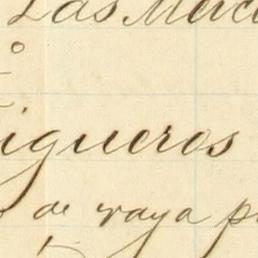 Las Merce
o
igueros
de raya p